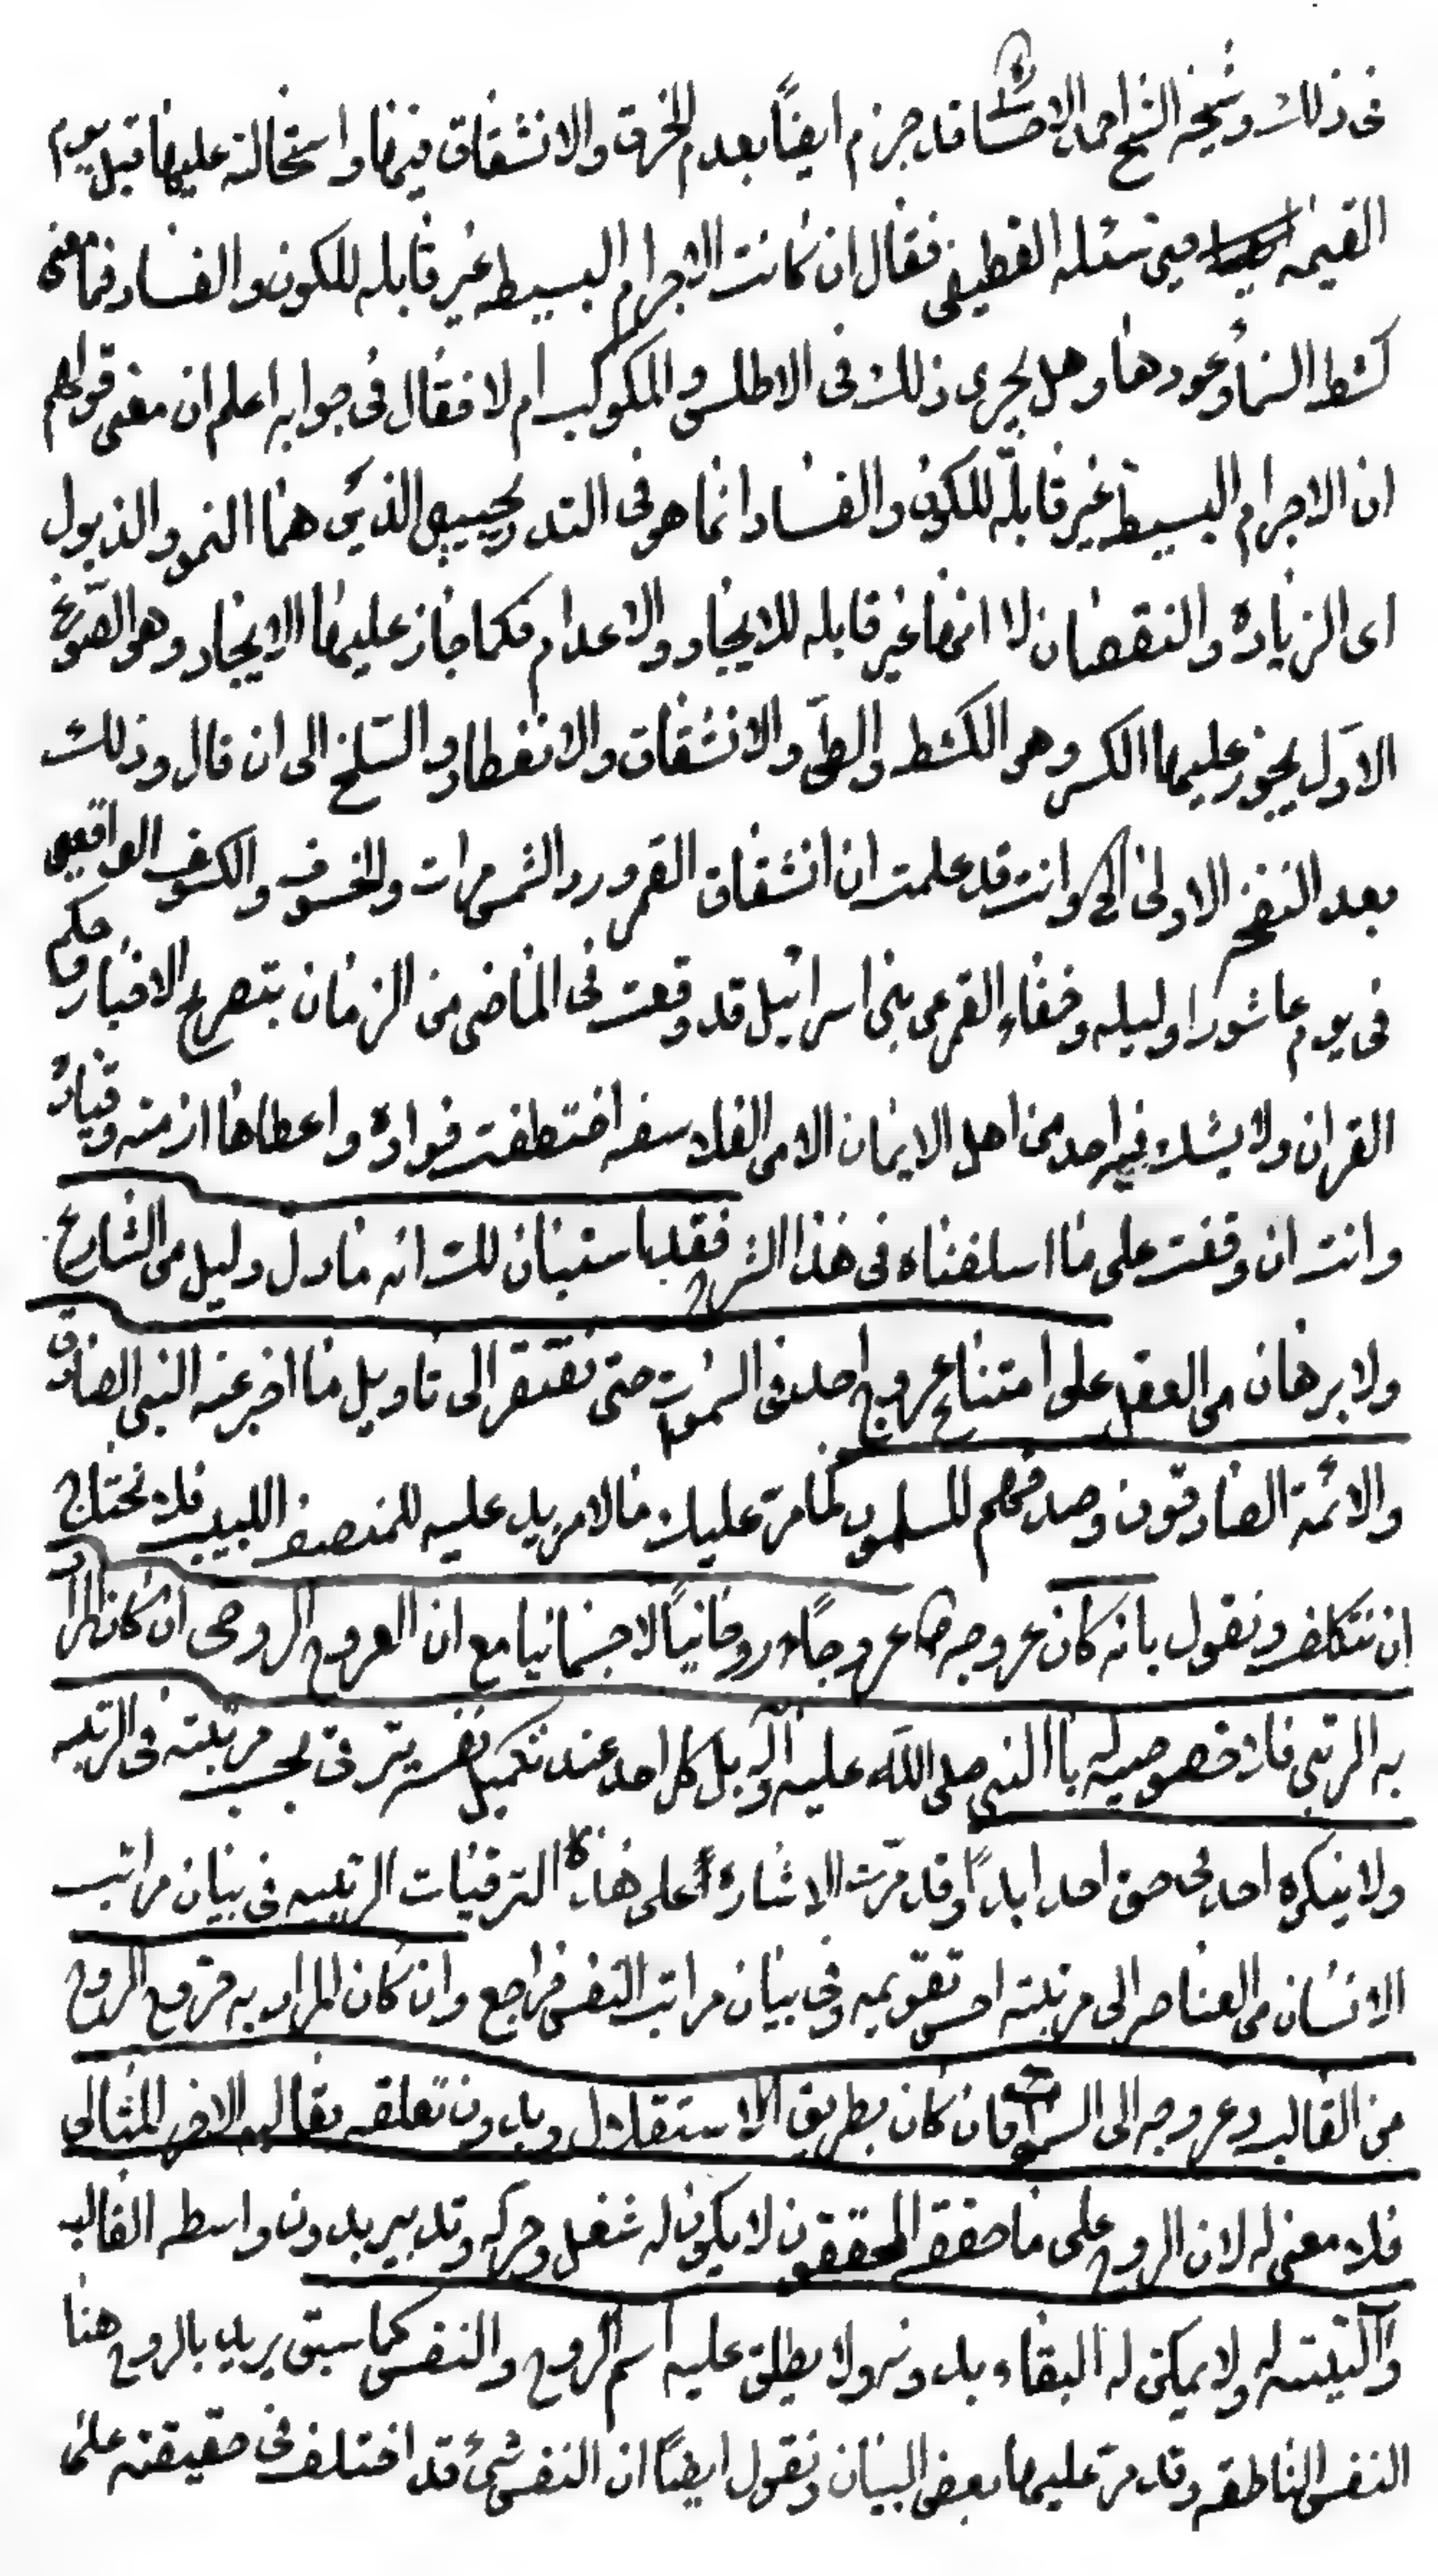 فی ذلك وشیخه الشیخ احمد الاحسا قد جزم ایضاً بعدم الخرق والانشقاق فیها واستحالته علیها قبل یوم
القیمه حین سئله القطیفی فقال ان کانت الاجرام البسیطه غیر قابله للکون والفساد فما معنی
کشط السماء وعودها وهل یجری ذلك فی الاطلس والمکوکب ام لا فقال فی جوابه اعلم ان معنی قولهم
ان الاجرام البسیطة غیر قابلة للکون والفساد انما هو فی التدریجیین الذین هما النمو والذبول
ای الزیادة والنقصان لا انها غیر قابله للایجاد والاعدام فکما جاز علیها الایجاد وهو الصوغ
الاوّل یجوز علیها الکسر وهو الکشط والطیّ والانشقاق والانفطار والسّلخ الی ان قال وذلك
بعد النفخ الاولی الخ وانت قد علمت ان انشقاق القمر ورد الشمس مرات والخسوف والکسوف الواقعین
فی یوم عاشورا ولیله وخفاء القمر عن بنی اسرائیل قد وقعت فی الماضی من الزمان بتصریح الاخبار وحکم
القران ولا یشك فیه احد من اهل الایمان الا من الفلاسفه اختطفت فواده واعطاها ازمته وقیاده
وانت ان وقفت علی ما اسلفناه فی هذا الشرح فقد استبان لك انه ما دل دلیل من الشارع
ولا برهان من العقل علی امتناع عروج احد فی السموات حتی نفتقر الی تاویل ما اخبر عنه النبی الصادق
والائمة الصادقون وصدقهم المسلمون کما مرّ علیك ما لا مزید علیه للمنصف اللبیب فلا نحتاج
ان نتکلف ونقول بانه کان عروجه ص عروجاً روحانیاً لا جسمانیا مع ان العروج الروحی ان کان المراد
به الرتبی فلا خصوصیه له باالنبی صلی اللّه علیه وآله بل کل احد عند تکمیل نفسه یترقی بحسب مرتبته فی الرتبه
ولا ینکره احد فی حق احد ابداً وقد مرّت الاشارة علی هذه الترقیات الرتبیه فی بیان مراتب
الانسان من العناصر الی مرتبته احسن تقویمه وفی بیان مراتب النفس فراجع وان کان المراد به خروج الروح
من القالب وعروجه الی السموات فان کان بطریق الاستقلال وبدون تعلقه بقالبه الاخر المثالی
فلا معنی له لان الروح علی ما حققه المحققون لا یکون له شغل وحرکه وتدبیر بدون واسطه القالب
وآلتیته له ولا یمکن له البقاء بدونه ولا یطلق علیه اسم الروح والنفس کما سبق یرید بالروح هنا
النفس الناطقه وقد مرّ علیها بعض البیان ونقول ایضاً ان النفس شیئ قد اختلف فی حقیقته علی